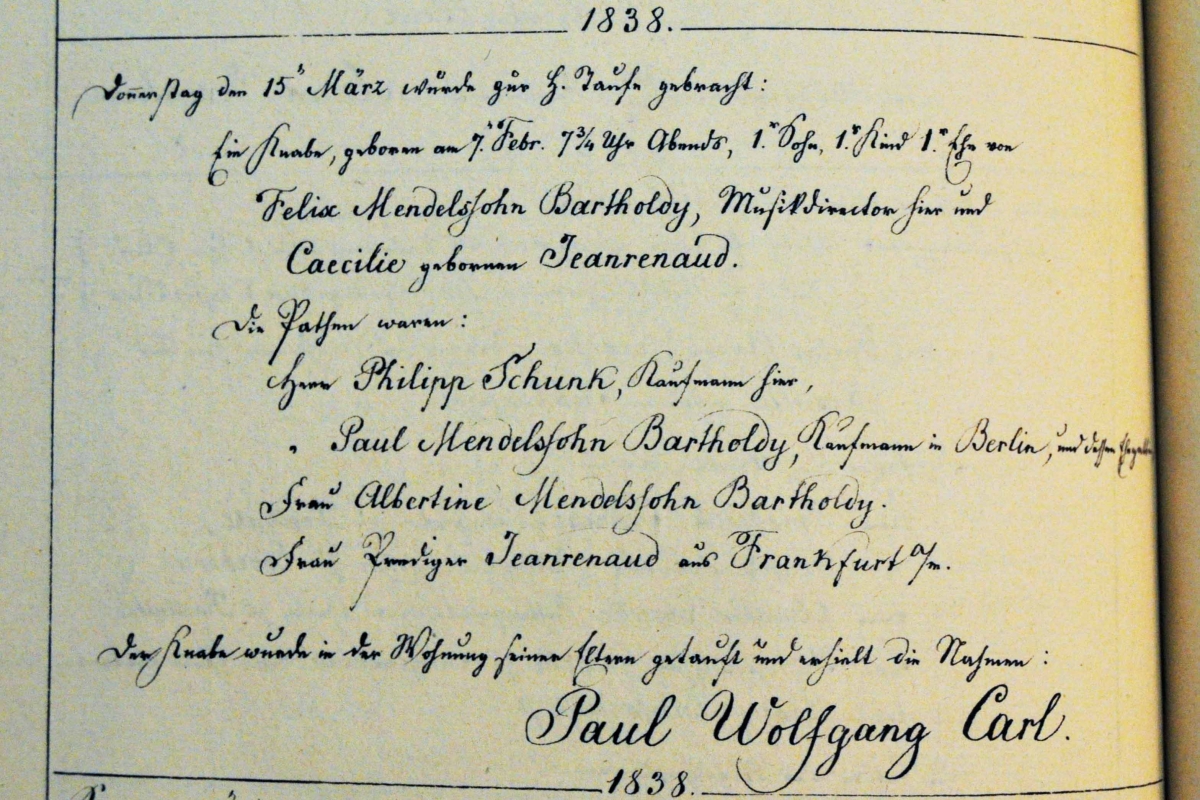 1838.
Donnerstag den 15n März wurde zur H. Taufe gebracht:
Ein Knabe, geboren am 7n. Febr. 7 3/4 Uhr Abends, 1.r Sohn, 1.s Kind 1.r Ehe von
Felix Mendelssohn Bartholdy, Musikdirector hier und
Caecilie gebornen Jeanrenaud.
Die Pathen waren:
Herr Philipp Schunk, Kaufmann hier,
" Paul Mendelssohn Bartholdy, Kaufmann in Berlin, und dessen
Frau Albertine Mendelssohn Bartholdy.
Frau Prediger Jeanrenaud aus Frankfurt a/m.
Der Knabe wurde in der Wohnung seiner Eltern getauft und erhielt die Nahmen:
Paul Wolfgang Carl.
1838.